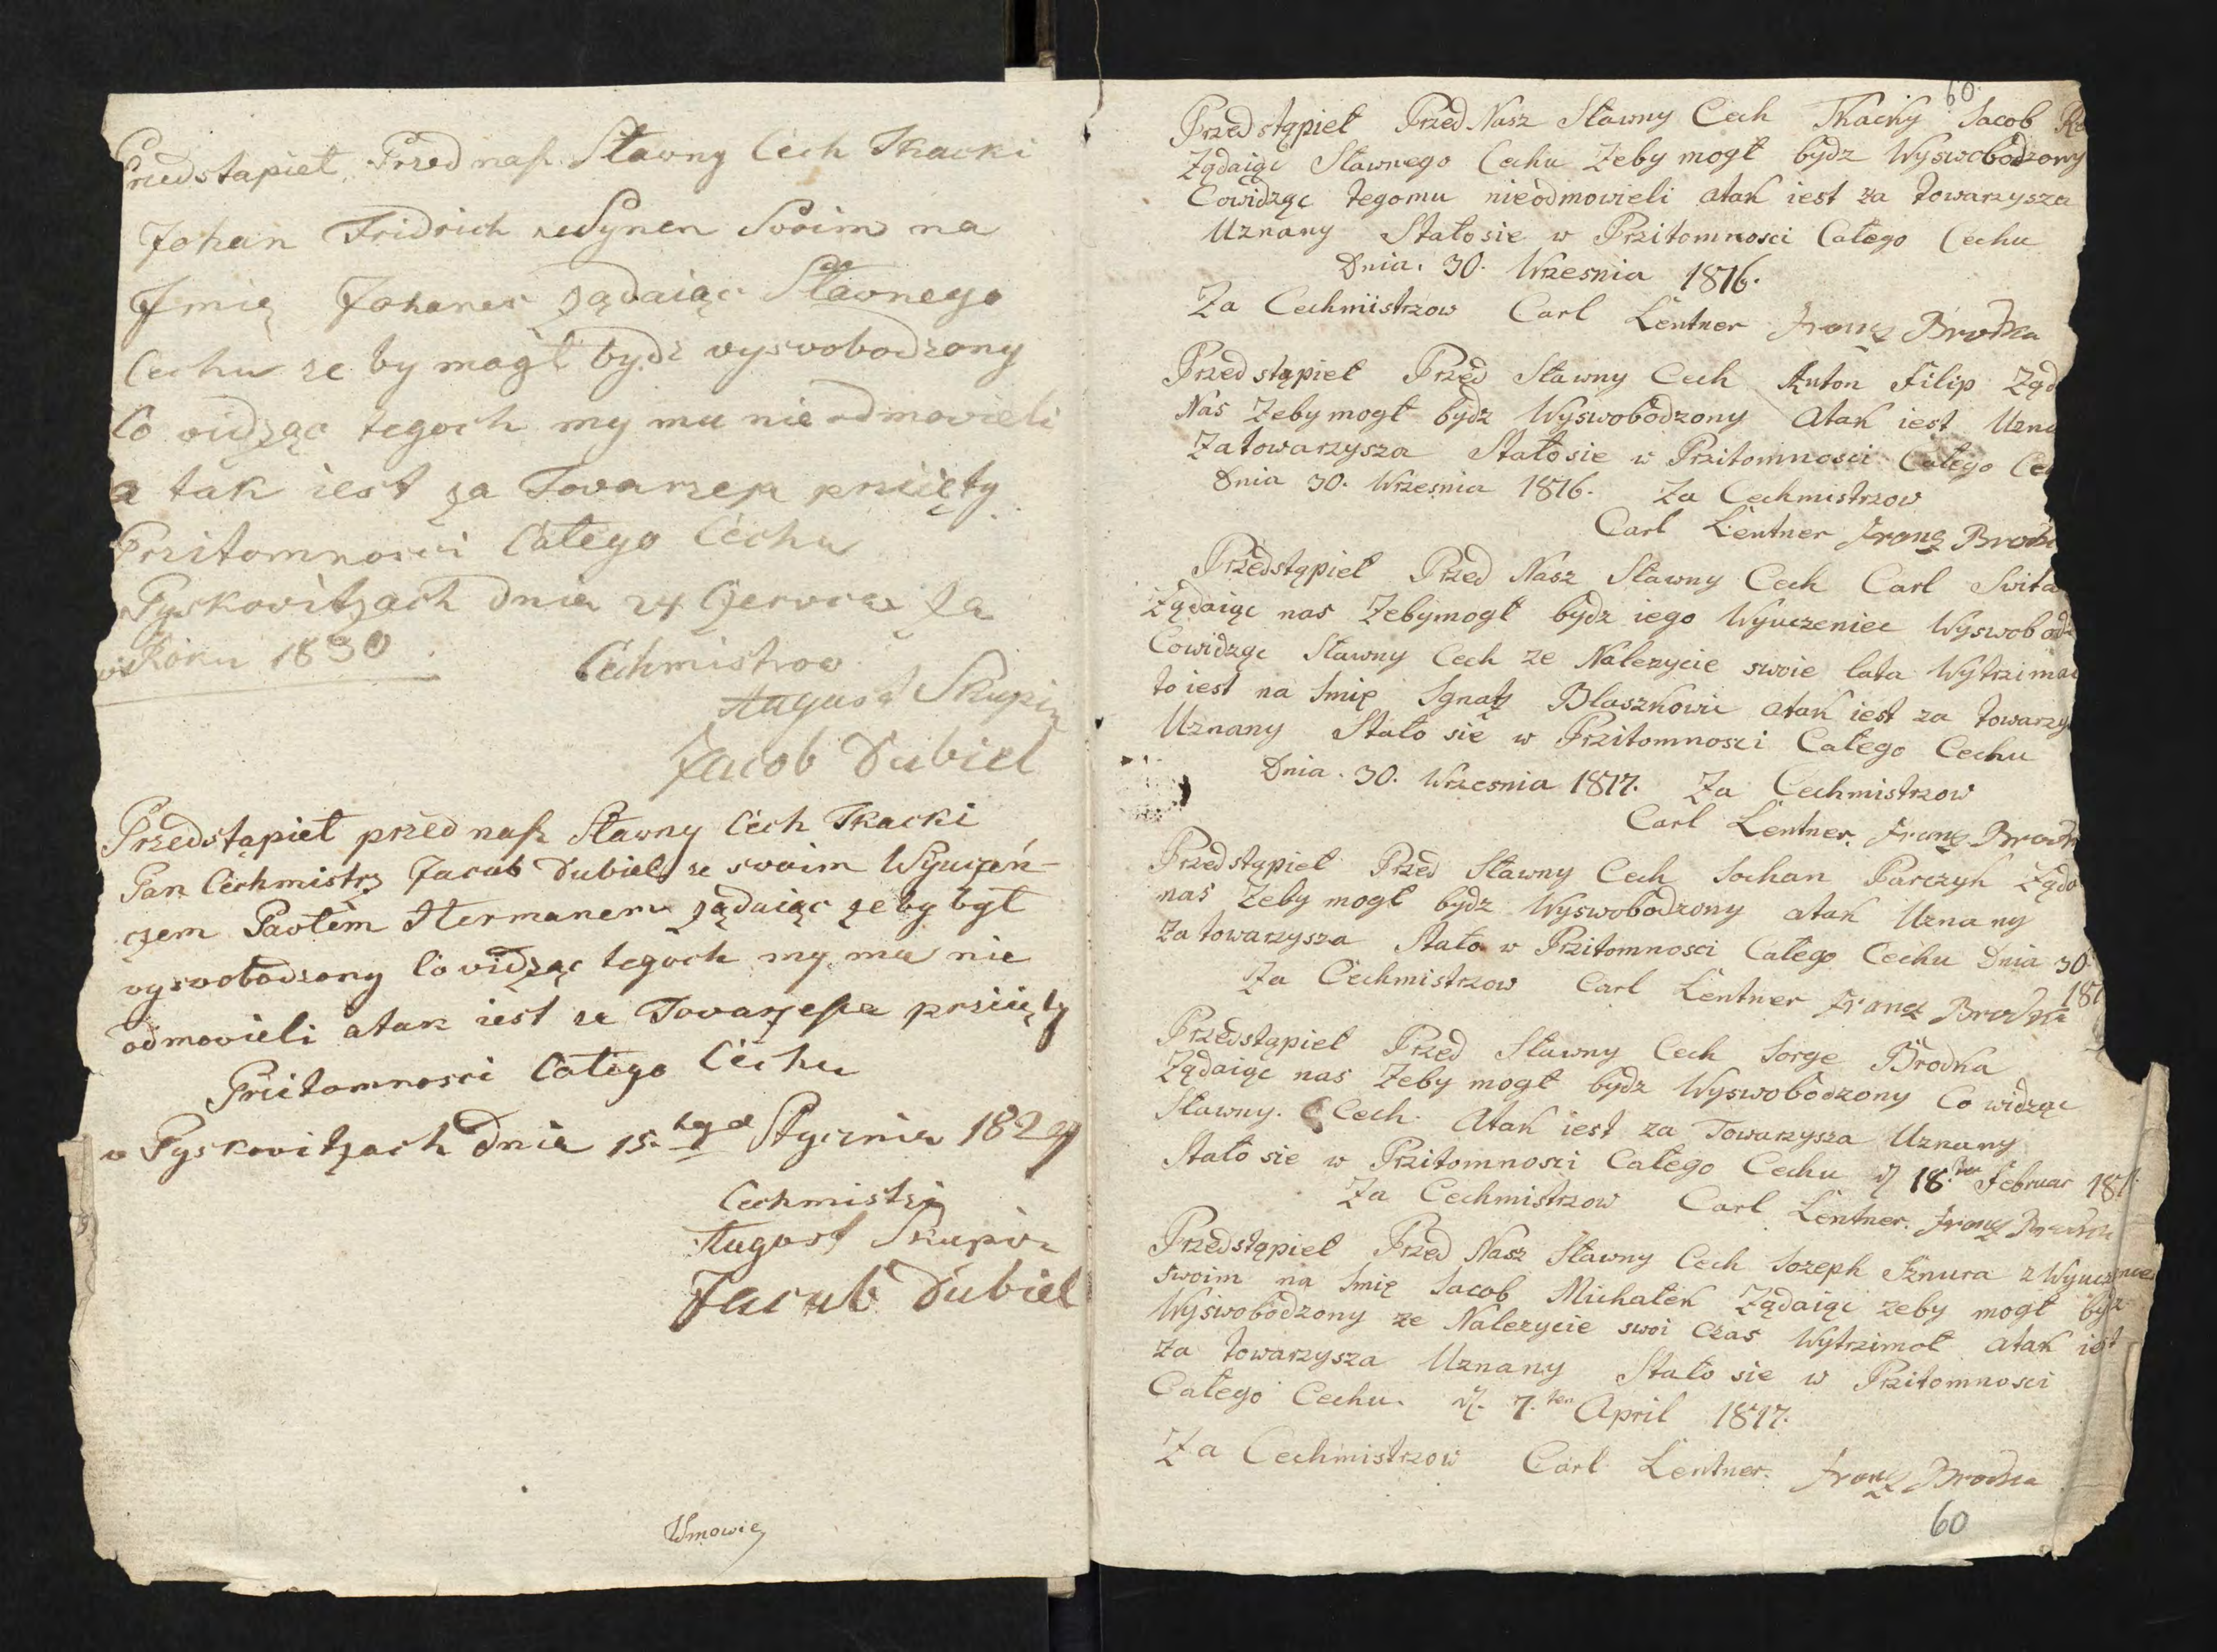 Przedstapieł Przed nasz Sławny Cech Tkacki
Johan Fridrich ze Synen Svoim na
Jmię Johanes ządaiąc Sławnego
Cechu ze by mogł bydz vysvobodzony
Co vidząc tegoch my mu nie odmovieli
a tak iest za Tovarzesza prziięty
Przitomnosci Całego Cechu
Pyskovitzach Dnia 24 Czervca Za
w Roku 1830 Cechmistrov
August Skupin
Jacob Dubiel
Przedstąpieł przed nasz Sławny Cech Tkacki
Pan Cechmistrz Jacub Dubiel ze svoim Wyuczeń-
czem Pavłem Hermanem ządaiąc zeby był
vysvobodzony Co vidząc tegoch my mu nie
odmovieli atak iest za Tovarzesza prziięty
Przitomnosci Całego Cechu
v Pyskovitzach Dnia 15. tego Stycznia 1829
Cechmistrzi
August Skupin
Jacub Dubiel
Wmowię
60.
Przedstąpieł Przed Nasz Sławny Cech Tkacky Jacob
Ządaiąc Sławnego Cechu Zeby mogł bydz Wyswobodzony
Cowidząc tegomu nieodmowieli atak iest za towarzysza
Uznany Stałosie w Przitomnosci Całego Cechu
Dnia. 30. Wrzesnia 1816.
Za Cechmistrzow Carl Lentner Franz Brodka
Przedstąpieł Przed Sławny Cech Anton Filip Ząd
Nas Zeby mogł bydz Wyswobodzony Atak iest Uzna
Zatowarzysza Stałosie w Przitomnosci Całego Cec
Dnia 30. Wrzesnia 1816. Za Cechmistrzow
Carl Lentner Franz Brodk
Przedstąpieł Przed Nasz Sławny Cech Carl Swita
Ządaiąc nas Zebymogł bydz iego Wyuczeniec Wyswobodz
Cowidząc Sławny Cech ze Nalezycie swoie lata Wytrzima
to iest na Imię Ignatz Blaszkowic atak iest za towarzy
Uznany Stało się w Przitomnosci Całego Cechu
Dnia. 30. Wrzesnia 1817. Za Cechmistrzow
Carl Lentner. Franz Brodk
Przedstąpieł Przed Sławny Cech Johan Parczyk Ząda
nas Zeby mogł bydz Wyswobodzony atak Uznany
Za towarzysza Stało w Przitomnosci Całego Cechu Dnia 30.
181
Za Cechmistrzow Carl Lentner Franz Brodka
Przedstąpieł Przed Sławny Cech Jorge Brodka
Ządaiąc nas Zeby mogł bydz Wyswobodzony Co widząc
Sławny. Cech. Atak iest za Towarzysza Uznany
Stało sie w Przitomnosci Całego Cechu d 18. ten Februar 181
Za Cechmistrzow Carl Lentner. Franz Brodka
Przedstąpieł Przed Nasz Sławny Cech Jozeph Sznura z Wyuczencem
swoim na Imię Jacob Michałek Ządaiąc zeby mogł bydz
Wyswobodzony ze Nalezycie swoi czas Wytrzimoł atak iest
za towarzysza Uznany Stało sie w Przitomnosci
Całego Cechu. d. 7. ten April 1817.
Za Cechmistrzow Carl Lentner. Franz Brodka
60